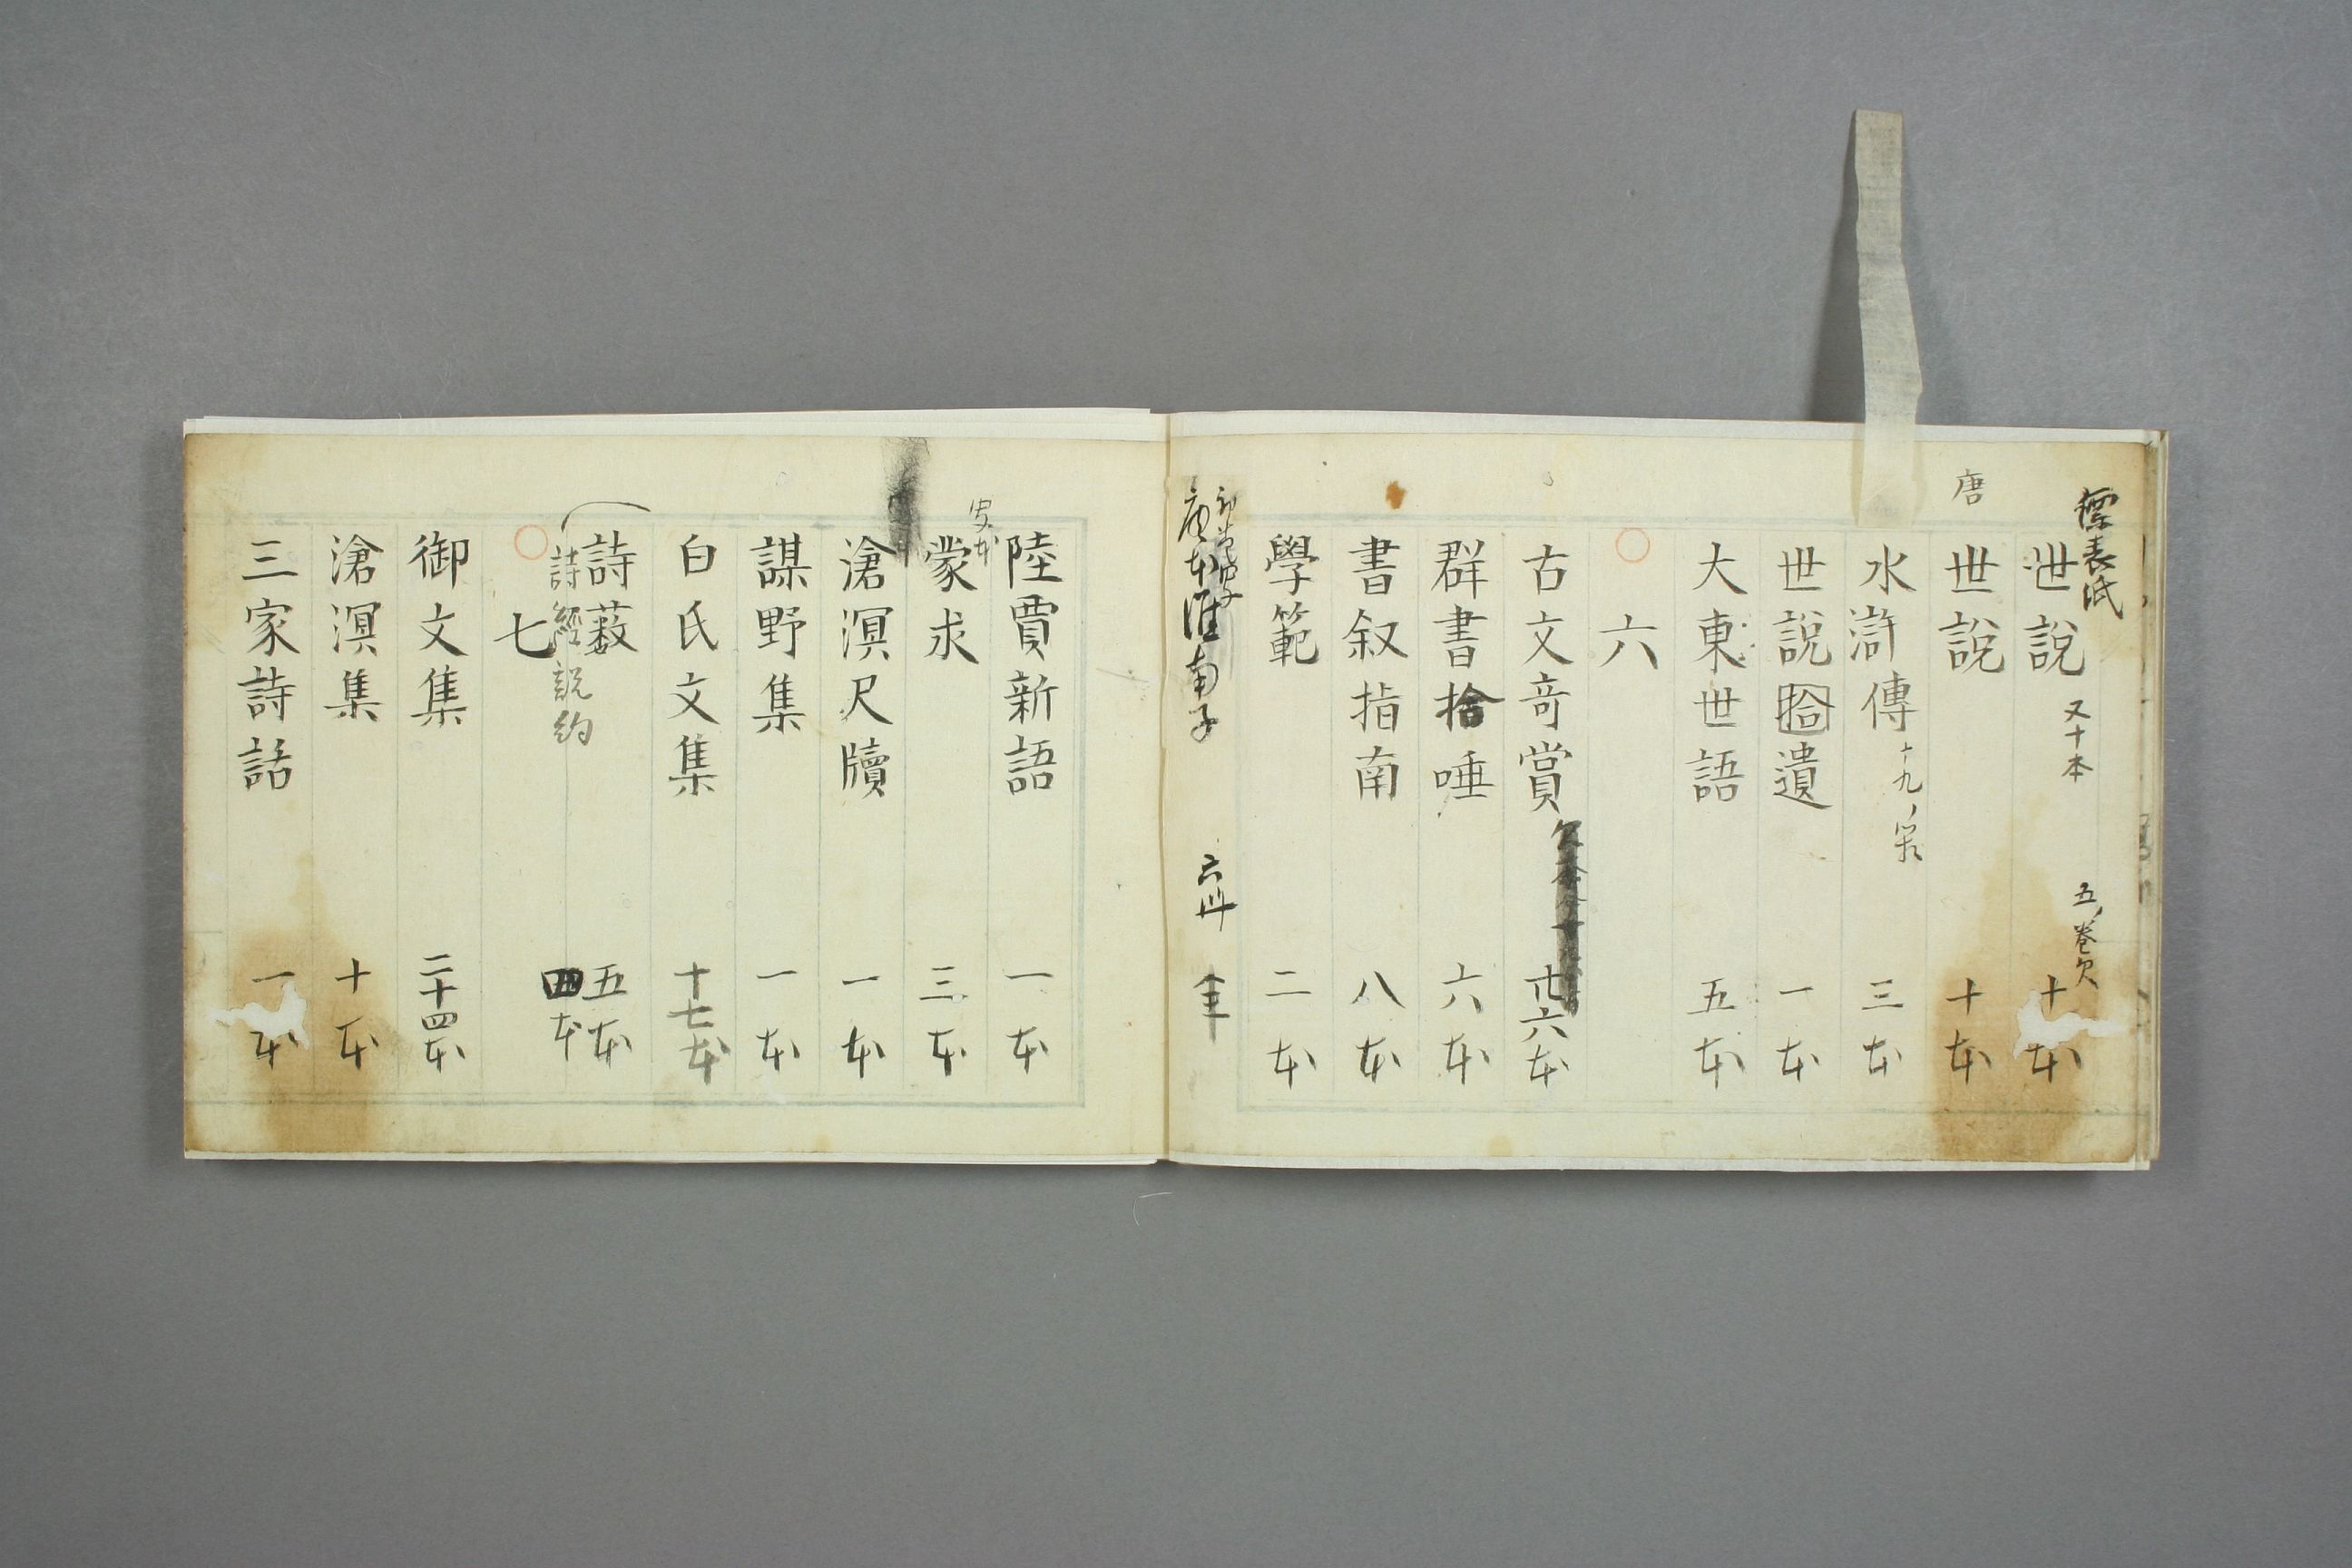 縹表帋
世說 又十本 五ノ巻欠 十本
唐
世說 十本
水滸傳 十九ノ 三本
世說拾遺 一本
大東世語 五本
六
古文奇賞 廿六本
群書拾唾 六本
書叙指南 八本
學範 二本
唐本淮南子 六冊
陸賈新語 一本
安本
蒙求 三本
滄溟尺牘 一本
謀野集 一本
白氏文集 十七本
詩藪 五本
詩經說約 四本
七
御文集 二十四本
滄溟集 十本
三家詩話 一本